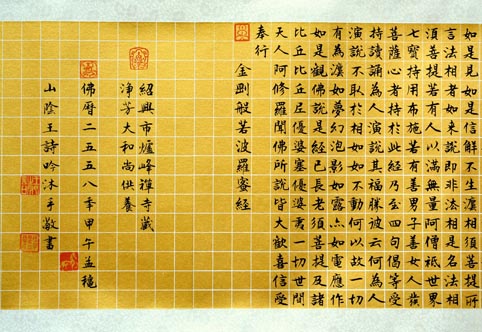 如是見如是信解不生灋相須菩提所
言法相者如來說即非法相是名法相
須菩提若有人以滿無量阿僧祇世界
七寶持用布施若有善男子善女人發
菩薩心者持於此經乃至四句偈等受
持讀誦為人演說其福勝彼云何為人
演說不取於相如如不動何以故一切
有為灋如夢幻泡影如露亦如電應作
如是觀佛說是經已長老須菩提及諸
比丘比丘尼優婆塞優婆夷一切世間
天人阿修羅聞佛所說皆大歡喜信受
奉行
金剛般若波羅蜜經
紹興市爐峰禪寺藏
淨芳大和尚供養
佛曆二五五八季甲午孟穐
山陰王詩吟沐手敬書